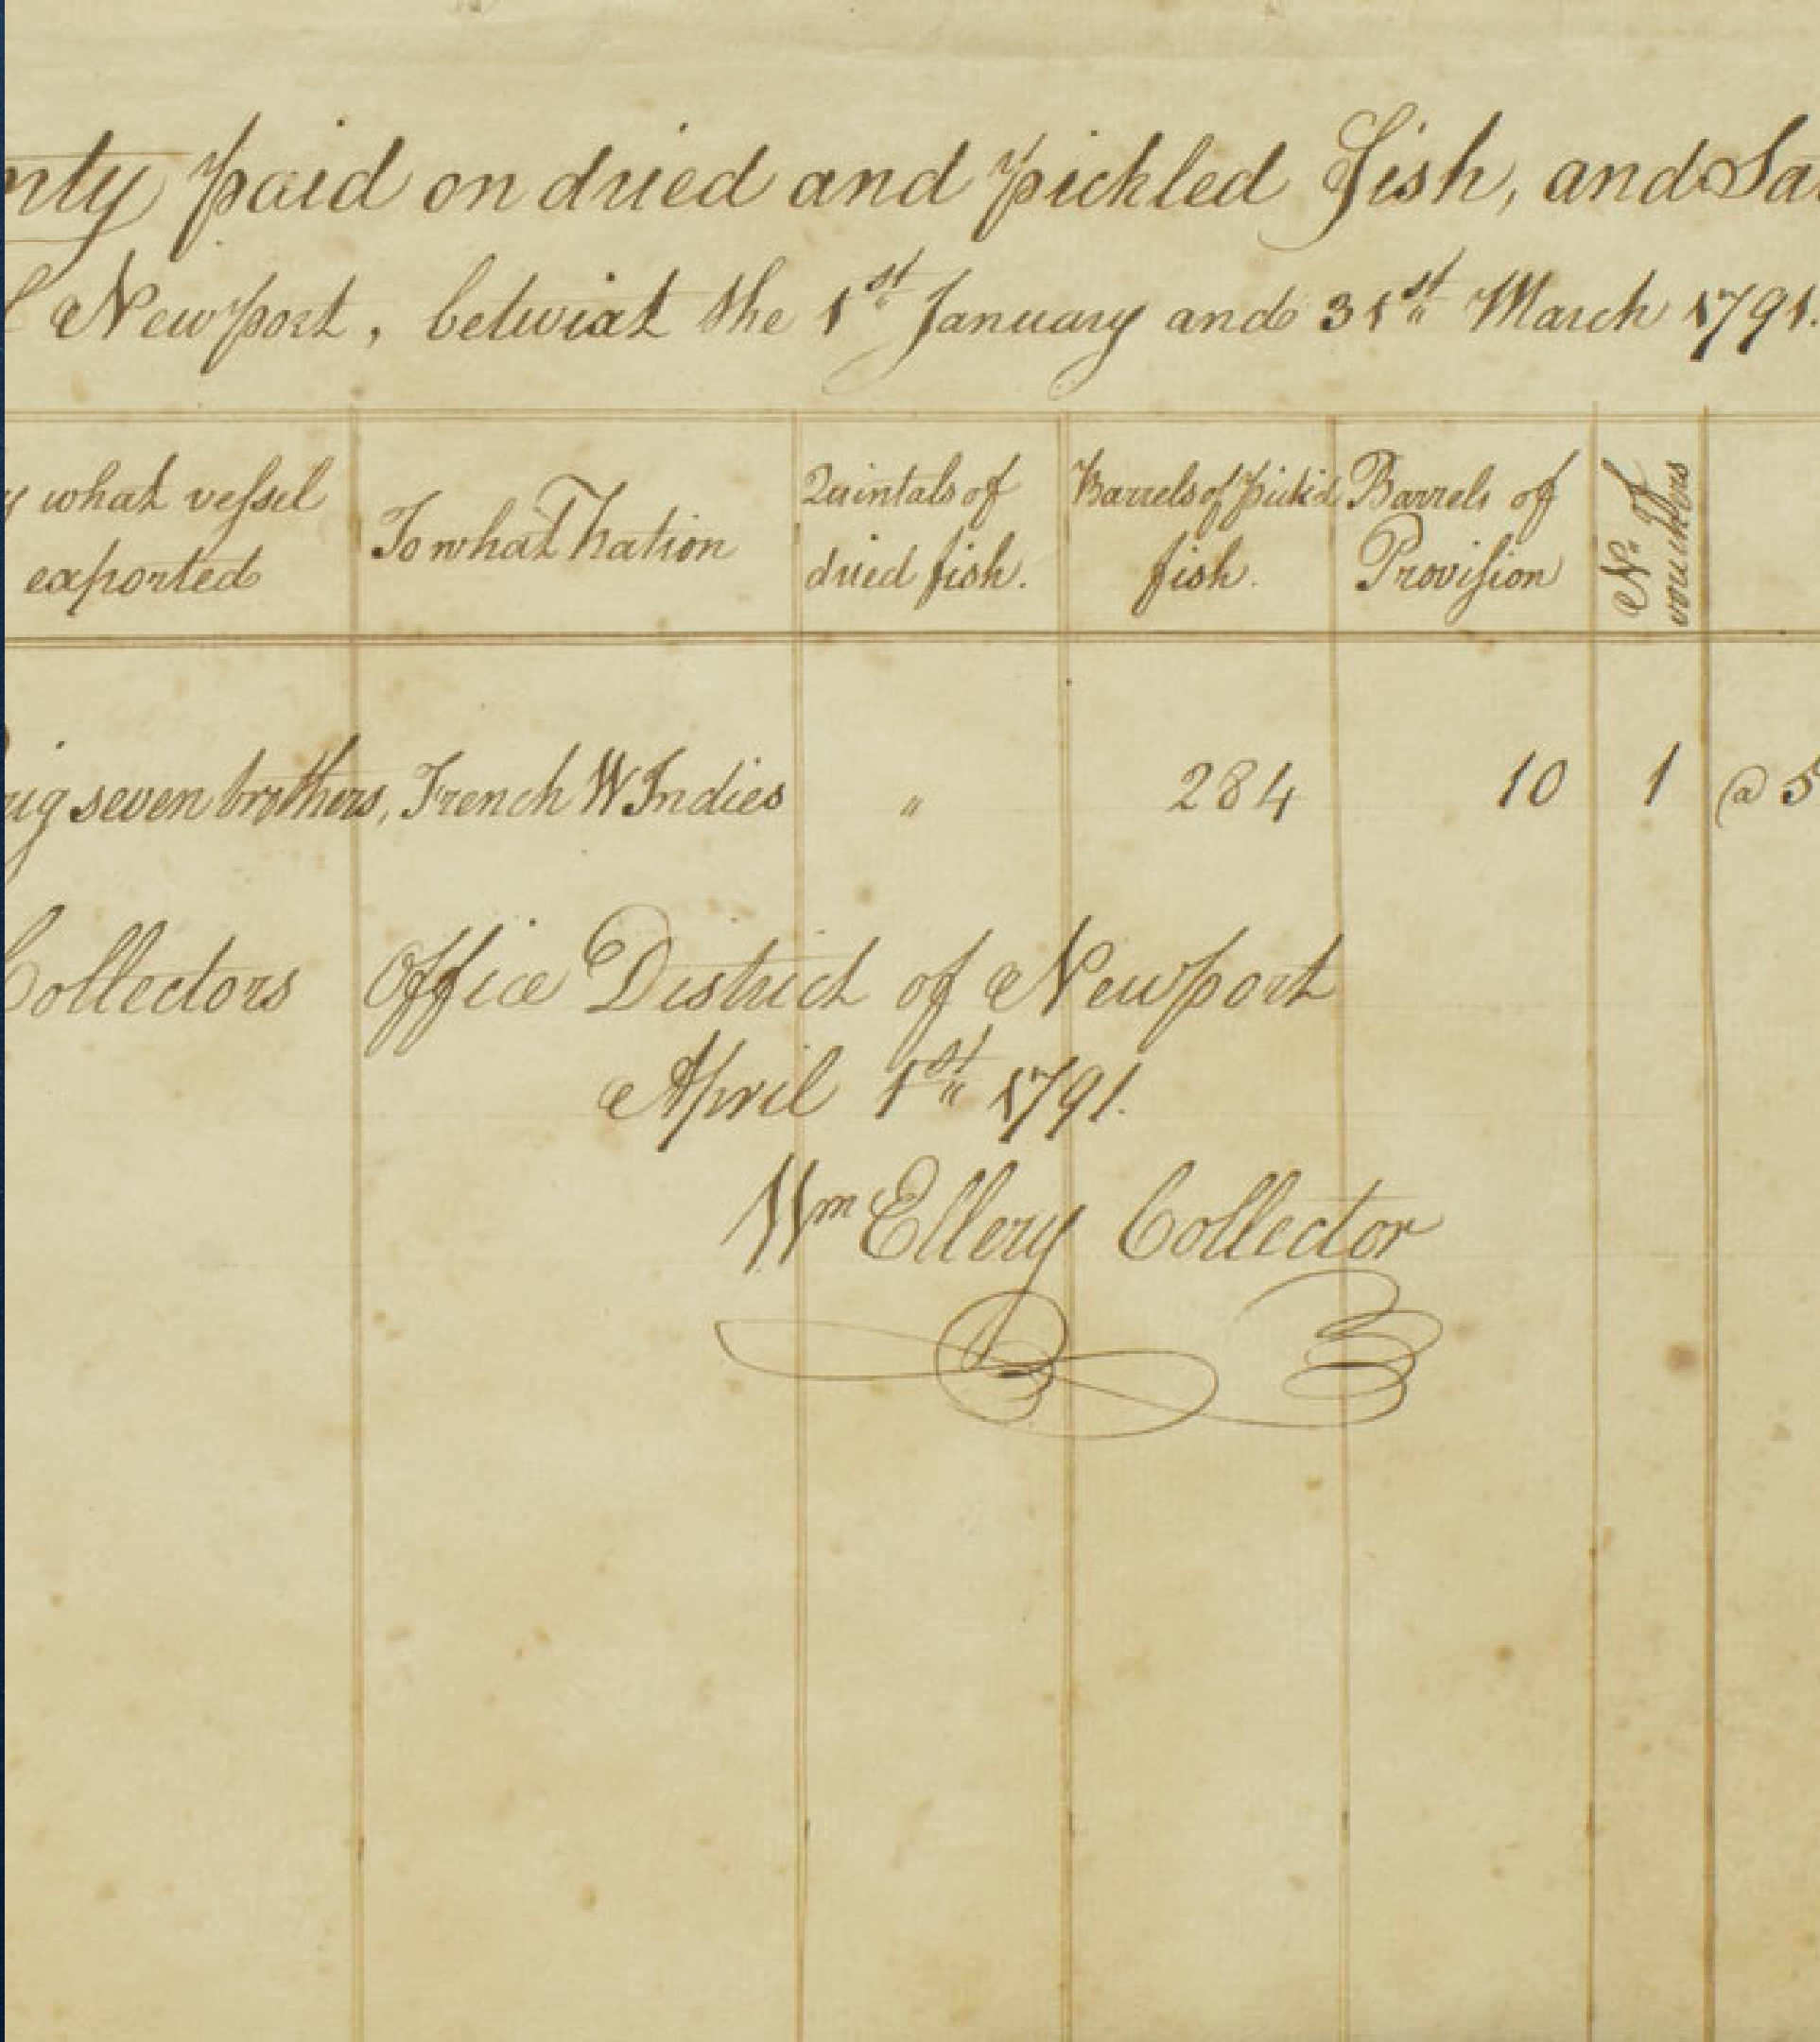 nty paid on dried and pickled fish, and Sa
Newport, betwixt the 1st January and 31st March 1791.
y what vessel
exported
To what Nation
Quintals of
dried fish.
Barrels of pick'd
fish.
Barrels of
Provision
No. of
vouchers
rig seven brothers, French W Indies " 284 10 1 @ 5
Collectors Office District of Newport
April 1st 1791.
Wm Ellery Collector